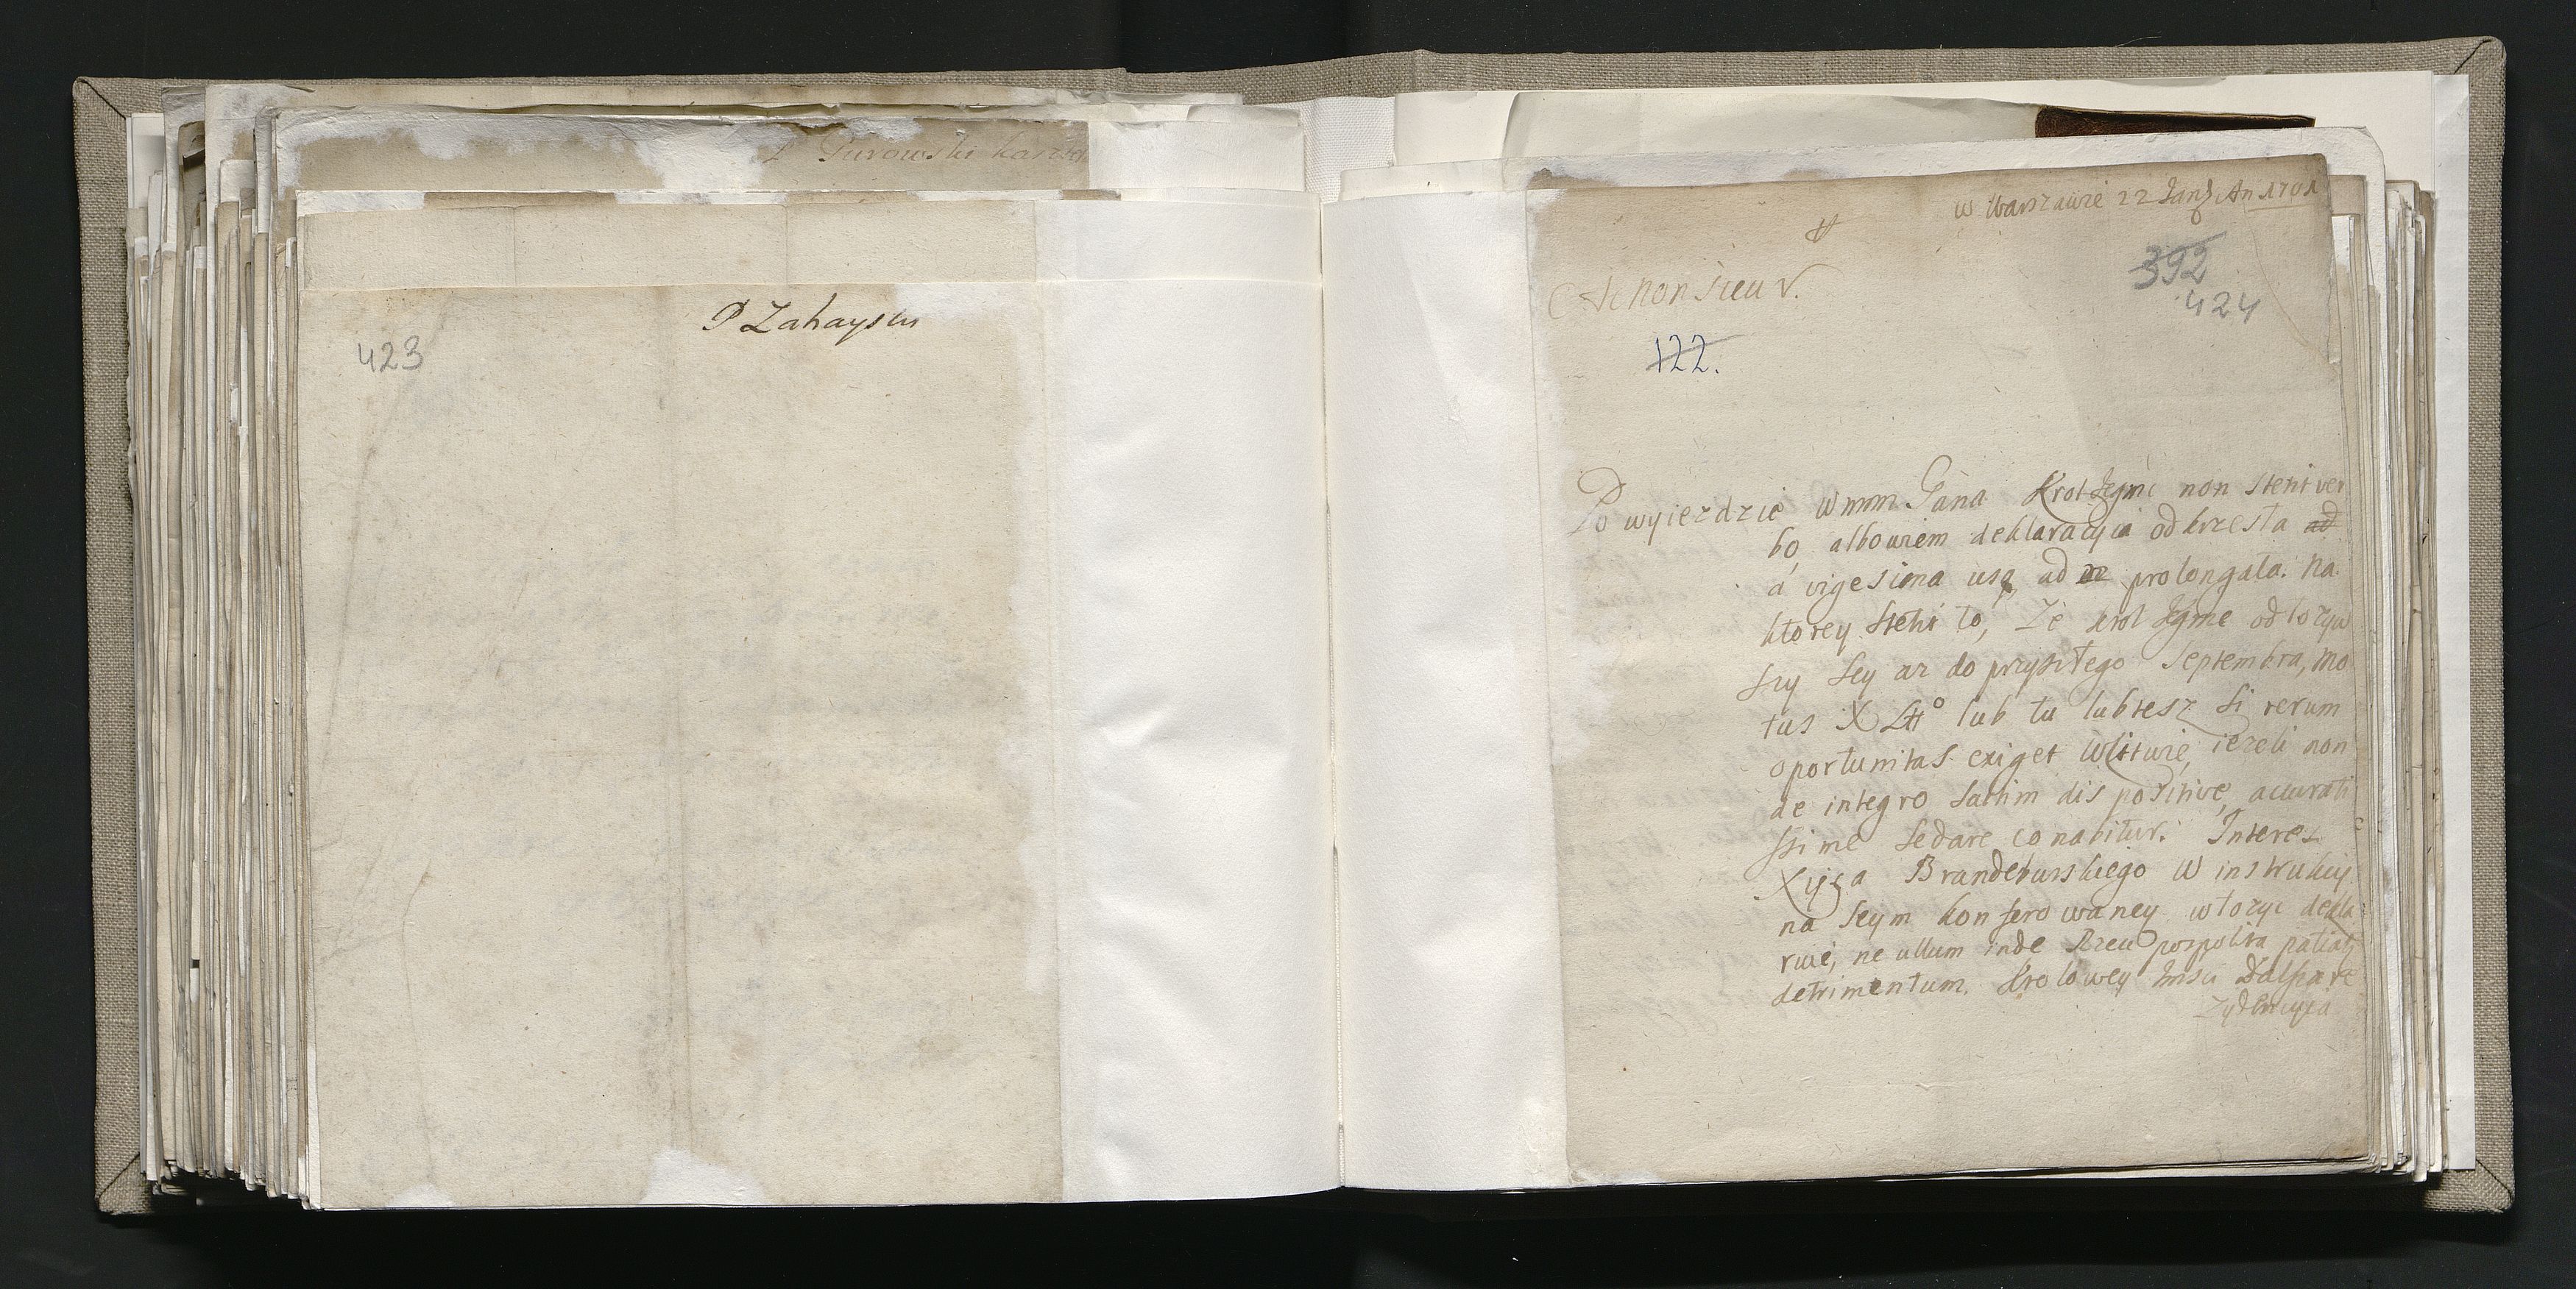 P Zahayski
423
w Warszawie 22 Jan An 1701
392
424
Monsieur.
122.
Po wyiezdzie Wmm Pana Krol Jegmc non stetit ver
bo, albowiem deklaracyia od krzesła ad
á vigesima usq ad prolongata. Na
ktorey stetit to, Ze krol Jgmc odłozyw
szy Sey az do przyszłego Septembra, mo
tus X Ltt° lub tu lubtesz si rerum
oportunitas exiget wlitwie, iezeli non
de integro saltim dispositive, accurati
ssime sedare conabitur. Interes
Xiąza Brandeburskiego W instrukcij
na Seym konferowaney włozyc dekla
ruie, ne ullum inde Rzeczpospolita patiat
detrimentum. Krolowey